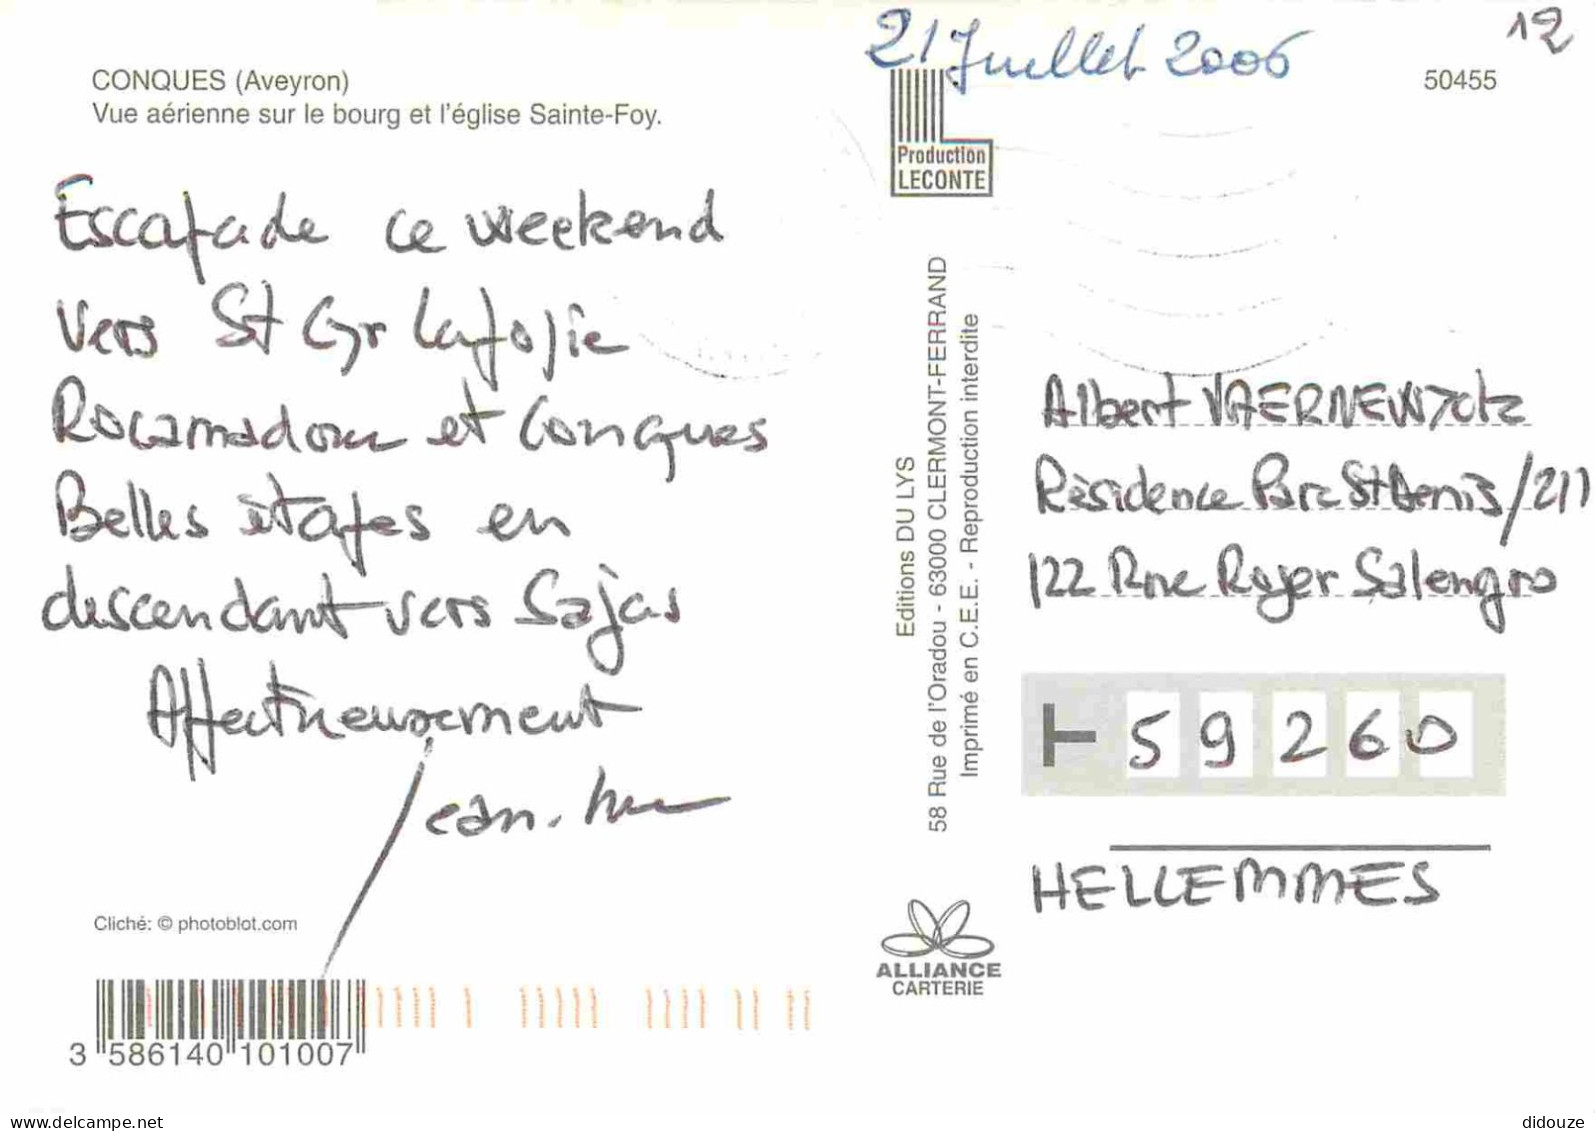 21 Juillet 2006
12
CONQUES (Aveyron)
Vue aérienne sur le bourg et l'église Sainte-Foy.
50455
Production
LECONTE
Escapade ce weekend
vers St Cyr Lapopie
Rocamadour et Conques
Belles étapes en
descendant vers Sajas
Affectueusement
Jean-Luc
Cliché: © photoblot.com
3 586140 101007
Editions DU LYS
58 Rue de l'Oradou - 63000 CLERMONT-FERRAND
Imprimé en C.E.E. - Reproduction interdite
ALLIANCE
CARTERIE
Albert
Résidence Parc St Denis/211
122 Rue Roger Salengro
59260
HELLEMMES
delcampe.net
didouze